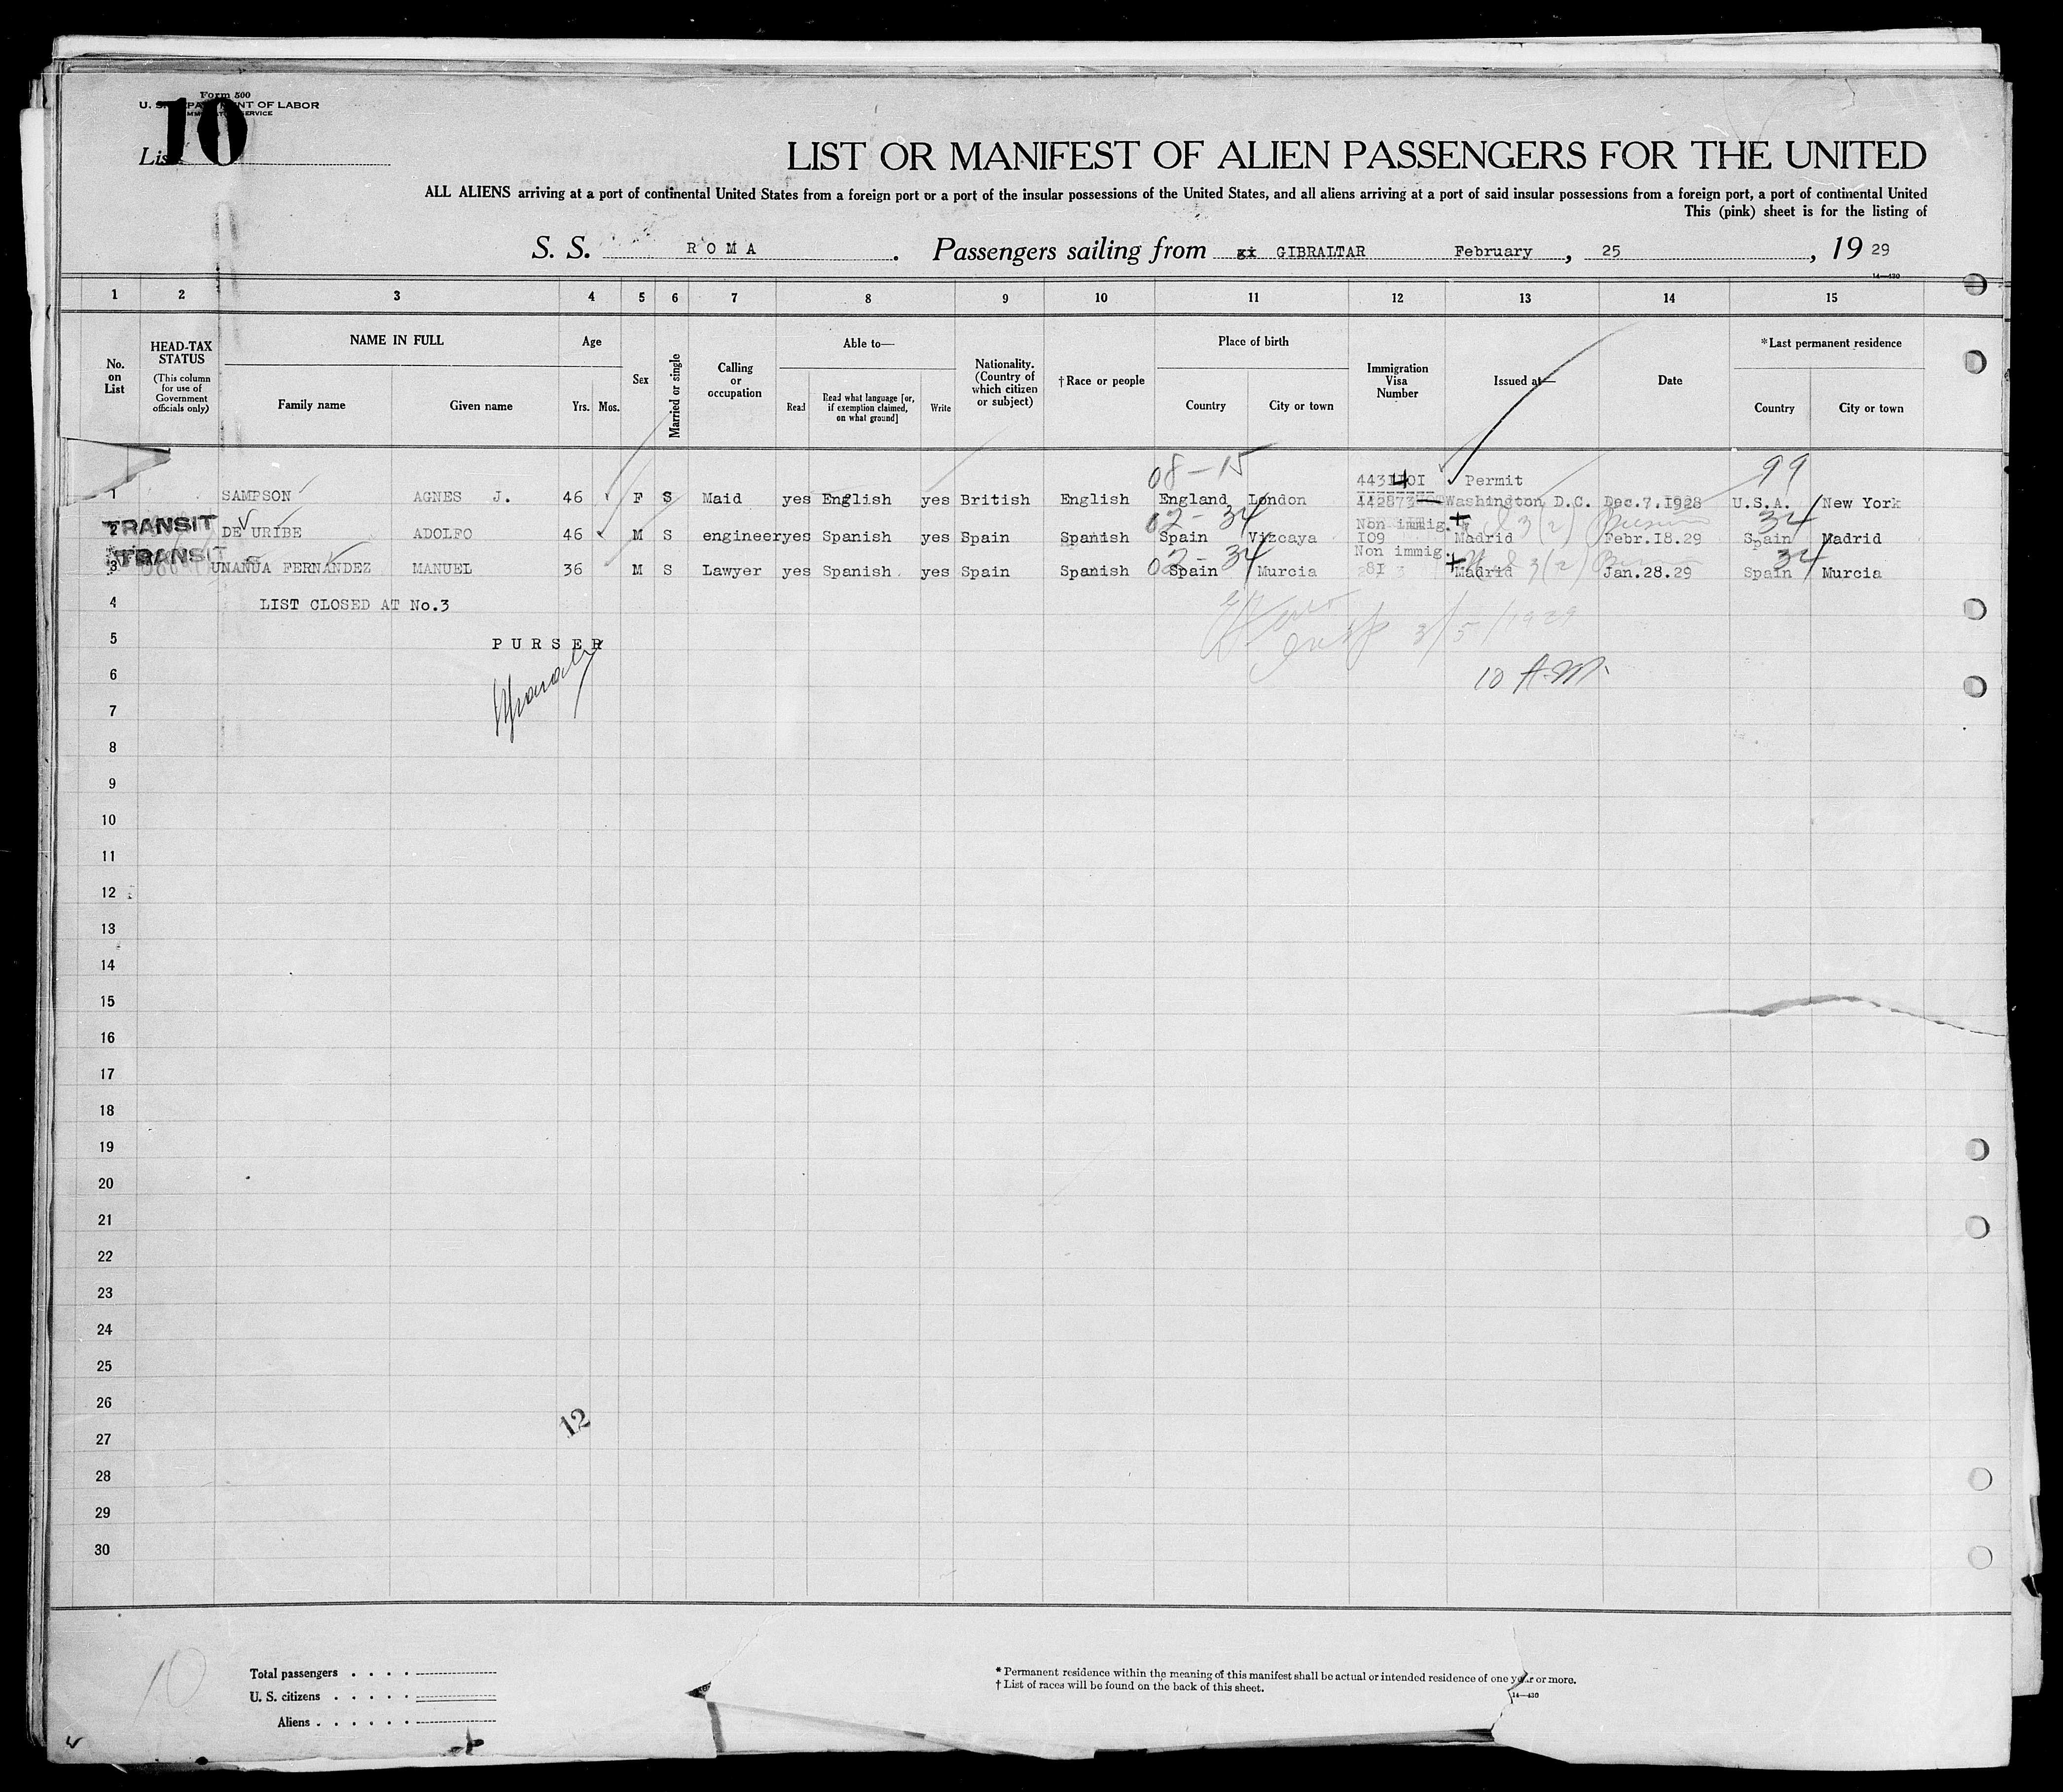 Form 500
U. S. DEPARTMENT OF LABOR
IMMIGRATION SERVICE
List 10
LIST OR MANIFEST OF ALIEN PASSENGERS FOR THE UNITED
ALL ALIENS arriving at a port of continental United States from a foreign port or a port of the insular possessions of the United States, and all aliens arriving at a port of said insular possessions from a foreign port, a port of continental United
This (pink) sheet is for the listing of
S. S. ROMA . Passengers sailing from GIBRALTAR February , 25 , 19 29
14—430
1 2 3 4 5 6 7 8 9 10 11 12 13 14 15
No. on List
HEAD-TAX STATUS
(This column for use of Government officials only)
NAME IN FULL
Family name Given name
Age
Yrs. Mos.
Sex
Married or single
Calling or occupation
Able to—
Read
Read what language [or, if exemption claimed, on what ground]
Write
Nationality. (Country of which citizen or subject)
†Race or people
Place of birth
Country City or town
Immigration Visa Number
Issued at—
Date
*Last permanent residence
Country City or town
08-15 99
Permit
1 SAMPSON AGNES J. 46 F S Maid yes English yes British English England London 442873 Washington D.C. Dec.7.1928 U.S.A. New York
TRANSIT 02-34 Non immig. 3(2) 34
2 DE URIBE ADOLFO 46 M S engineer yes Spanish yes Spain Spanish Spain Vizcaya I09 Madrid Febr.I8.29 Spain Madrid
TRANSIT 02-34 Non immig. 3(2) 34
3 UNANUA FERNANDEZ MANUEL 36 M S Lawyer yes Spanish yes Spain Spanish Spain Murcia 8I Madrid Jan.28.29 Spain Murcia
4 LIST CLOSED AT No.3
5 PURSER 3/5/1929
6 10 A.M.
7
8
9
10
11
12
13
14
15
16
17
18
19
20
21
22
23
24
25
26
12
27
28
29
30
10
Total passengers . . . .
U. S. citizens . . . . .
Aliens . . . . . .
* Permanent residence within the meaning of this manifest shall be actual or intended residence of one year or more.
† List of races will be found on the back of this sheet.
14—430